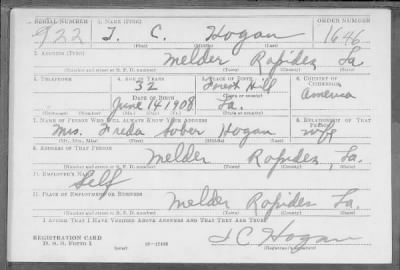 SERIAL NUMBER 1. NAME (PRINT) ORDER NUMBER
922 J. C. Hogan 1646
(First) (Middle) (Last)
2. ADDRESS (PRINT)
Melder Rapides La.
(Number and street or R. F. D. number) (Town) (County) (State)
3. TELEPHONE 4. AGE IN YEARS 5. PLACE OF BIRTH 6. COUNTRY OF CITIZENSHIP
32 Forest Hill America
DATE OF BIRTH (Town or county)
June 14 1908 La.
(Mo.) (Day) (Yr.) (State or country)
7. NAME OF PERSON WHO WILL ALWAYS KNOW YOUR ADDRESS 8. RELATIONSHIP OF THAT PERSON
Mrs. Freda Hogan wife
(Mr., Mrs., Miss) (First) (Middle) (Last)
9. ADDRESS OF THAT PERSON
Melder Rapides, La.
(Number and street or R. F. D. number) (Town) (County) (State)
10. EMPLOYER'S NAME
Self
11. PLACE OF EMPLOYMENT OR BUSINESS
Melder Rapides La.
(Number and street or R. F. D. number) (Town) (County) (State)
I AFFIRM THAT I HAVE VERIFIED ABOVE ANSWERS AND THAT THEY ARE TRUE.
REGISTRATION CARD
D. S. S. Form 1
J C Hogan
(Registrant's signature)